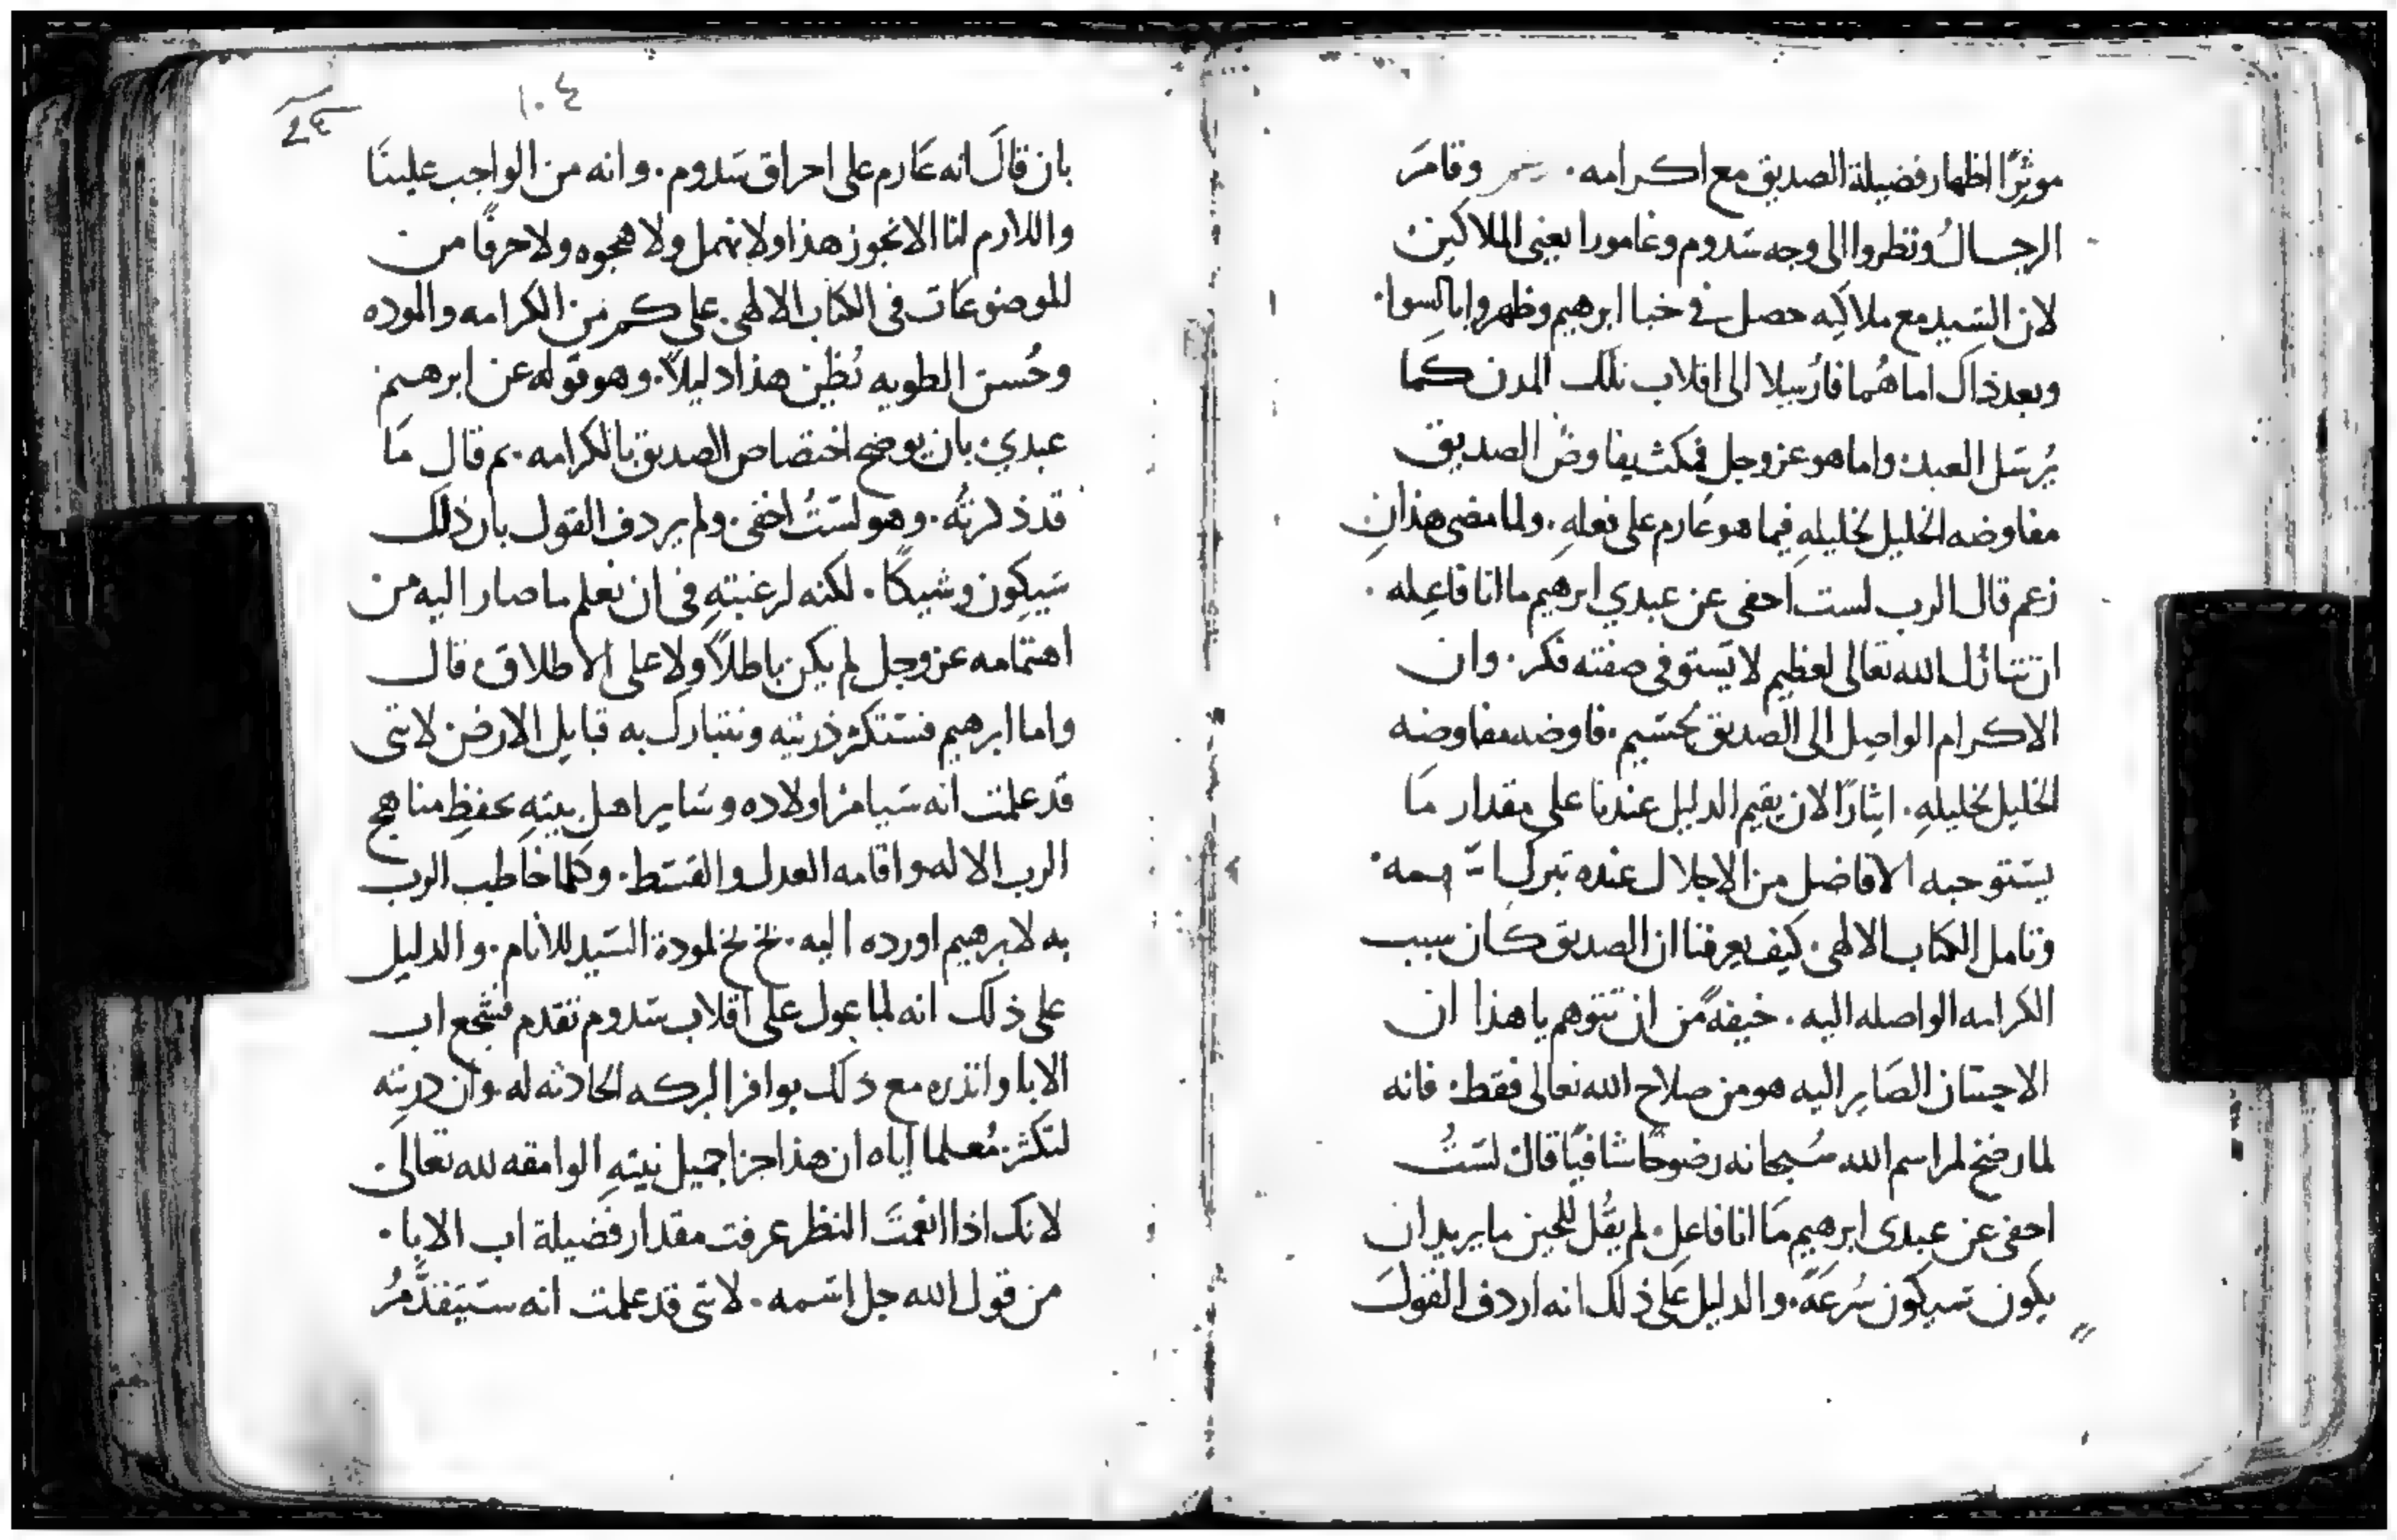 موثرًا اظهار فضيلة الصديق مع اكرامه. وقامَر
الرجالُ ونظروا الى وجه سَدوم وغامورا يعنى الملاكين
لان السَيد مع ملاكيه حصل في خبا ابرهيم وظهروا
وبعد ذاك اما هُما فارُسِلا الى اقلاب تلك المدن كما
يُرسَل العبد. واما هو عز وجل فمكث يفاوضُ الصديق
مفاوضه الخليل لخليلهِ فيما هو عَازم على فعلهِ. ولما مضى هذانِ
زعم قال الرب لست احفى عن عبدي ابرهيم ما انا فاعِله.
ان تنازل الله تعالى لعظيم لا يَستوفى صفته فكر. وان
الاكرام الواصِل الى الصديق لجسَيم. فاوضه مفاوضه
الخليل لخليلهِ. ايثارًا لان يقيم الدليل عندنا على مقدار مَا
يستوجبه الافاضل من الاجلال عنده تبركا
وتامل الكتاب الالهى. كيف يعرفنا ان الصديق كان سبب
الكرامه الواصله اليه. خيفةً من ان تتوهم يا هذا ان
الاحسَان الصَاير اليه هو من صلاح الله تعالى فقط. فانه
لما رضخ لمراسم الله سُبحانه رضوخًا شافيًا قال لسَتُ
احفى عن عبدى ابرهيم مَا انا فاعِل. لم يقُل للحين ما يريد ان
يكون سَيكون سُرعَةً. والدليل عَلى ذلك انه اردف القولَ
١٠٤
بان قالَ انه عَازم على احراق سَدوم. وانه من الواجب علينَا
واللازم لنا الا نجوز هذا ولا نهمل ولا هجوه ولا حرفًا من
للموضوعَات فى الكتاب الالهى. على كم من الكرامه والموده
وحُسن الطويه تُظن هذا دليلاً. وهو قوله عن ابرهيم
عبدي. بان يوضح اختصاص الصديق بالكرامه. ثم قال مَا
قد ذكرتُه. وهو لسَتُ اخفى. ولم يردف القول بان ذلك
سَيكون وشيكًا. لكنه لرغبتهِ فى ان نعلم ما صار اليه من
اهتمامه عز وجل لم يكن باطلاً ولا على الاطلاق قال
واما ابرهيم فستَكثر ذريته وتتبارك به قبايل الارض. لانى
قد علمت انه سَيامر اولاده وسَاير اهل بيته بحفظِ مناهج
الرب الاله واقامه العدل والقسَط. وكلما خاطب الرب
به لابرهيم اورده اليه. بخ بخ لمودة السَيد للانام. والدليل
على ذلك انه لما عول على اقلاب سَدوم تقدم فشجع اب
الابا وانذره مع ذلك بوافر البركه الحادثه له. وان ذريته
لتكثر. مُعلما اياه ان هذا جزا جميل نيتهِ الوامقه لله تعالى
لانك اذا انعمتَ النظر عرفت مقدار فضيلة اب الابا.
من قول الله جل اسَمه. لانى قد علمت انه سَيتقدَّمُرُ